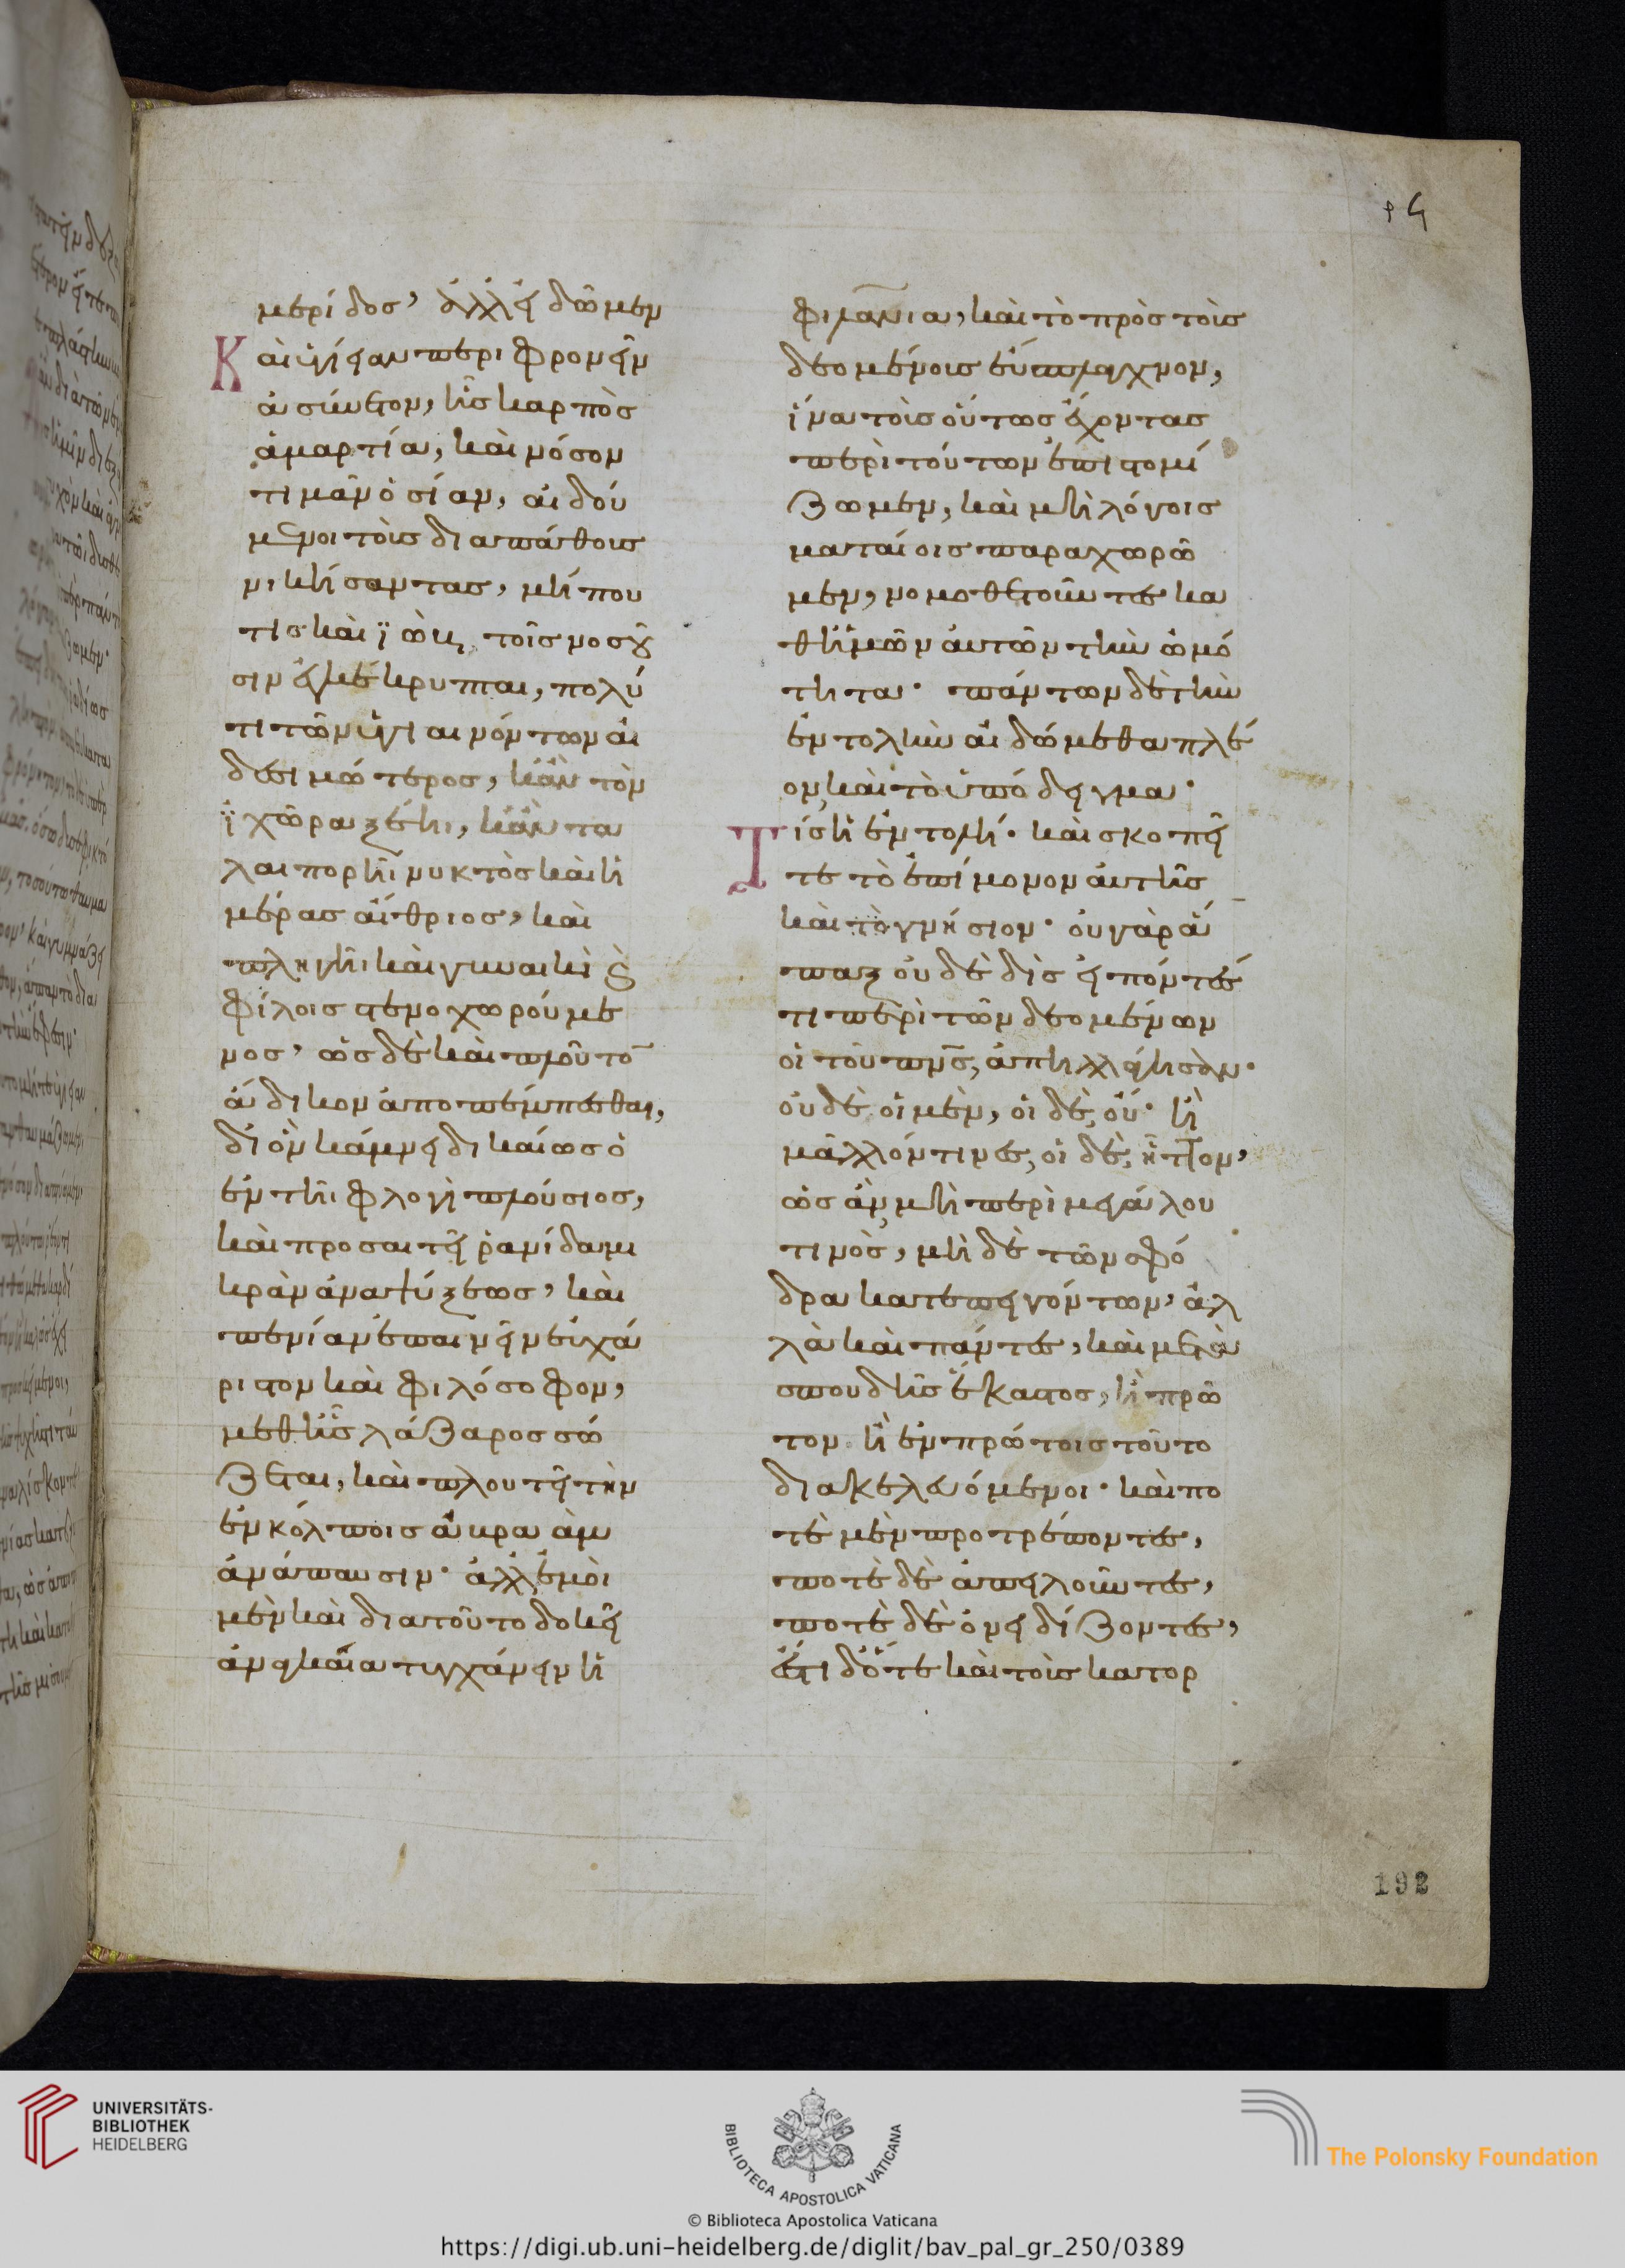 ρς
μερίδος, ἀλλ' εἰδῶμεν
Καὶ ὑγίειαν περιφρονεῖν
ἀσύνετον, ἧς καρπὸς
ἁμαρτία, καὶ νόσον
τιμᾶν ὁσίαν, αἰδού
μενοι τοὺς διὰ πάθους
νικήσαντας, μή που
τις καὶ ϊὼβ, τοῖς νοσοῦ
σιν ἐγκέκρυπται, πολύ
τι τῶν ὑγιαινόντων αἰ
δεσιμώτερος, κἂν τὸν
ϊχῶρα ξέηι, κἂν τα
λαιπορῆι νυκτὸς καὶ ἡ
μέρας αἴθριος, καὶ
πληγῆι καὶ γυναικὶ ϗ
φίλοις στενοχωρούμε
νος, ὡς δὲ καὶ πλοῦτο̄
ἄδικον ἀποπέμπεσθαι,
δι' ὃν κάμνει δικαίως ὁ
ἐν τῆι φλογὶ πλούσιος,
καὶ προσαιτεῖ ῥανίδα μι
κρὰν ἀναψύξεως, καὶ
πενίαν ἐπαινεῖν εὐχά
ριστον καὶ φιλόσοφον,
μεθ' ἧς λάζαρος σώ
ζεται, καὶ πλουτεῖ τὴν
ἐν κόλποις ἄβρααμ
ἀνάπαυσιν. ἀλλ' ἐμοὶ
μὲν καὶ διατοῦτο δοκεῖ
ἀναγκαῖα τυγχάνειν ἡ
φιλα̅νι̅α, καὶ τὸ πρὸς τοὺς
δεομένους εὔσπλαγχνον,
ἵνα τοὺς οὕτως ἔχοντας
περὶ τούτων ἐπιστομί
ζωμεν, καὶ μὴ λόγοις
ματαίοις παραχωρῶ
μεν, νομοθετοῦντες κα
θ' ἡμῶν αὐτῶν τὴν ὠμό
τητα. πάντων δὲ τὴν
ἐντολὴν αἰδώμεθα πλέ
ον, καὶ τὸ ὑπόδειγμα.
Τίς ἡ ἐντολή. καὶ σκοπεῖ
τε τὸ ἐπίμονον αὐτῆς
καὶ τὸ γνήσιον. οὐ γὰρ ἅ
παξ οὐδὲ δὶς εἰπόντές
τι περὶ τῶν δεομένων
οἱ τοῦ πν̅ς̅, ἀπηλλάγησαν.
οὐδὲ οἱ μὲν, οἱ δὲ, οὔ. ἢ
μᾶλλόν τινες, οἱ δὲ, ἧττον,
ὡς ἂν μὴ περὶ μεγάλου
τινὸς, μὴ δὲ τῶν σφό
δρα κατεπειγόντων, ἀλ
λὰ καὶ πάντες, καὶ μετὰ
σπουδῆς ἕκαστος, ἢ πρῶ
τον ἢ ἐν πρώτοις τοῦτο
διακελευόμενοι. καὶ πο
τὲ μὲν προτρέποντες,
ποτὲ δὲ ἀπειλοῦντες,
ποτὲ δὲ ὀνειδίζοντες,
ἔστι δ' ὅτε καὶ τοὺς κατορ
192
UNIVERSITÄTS-
BIBLIOTHEK
HEIDELBERG
BIBLIOTECA APOSTOLICA VATICANA
The Polonsky Foundation
© Biblioteca Apostolica Vaticana
https://digi.ub.uni-heidelberg.de/diglit/bav_pal_gr_250/0389